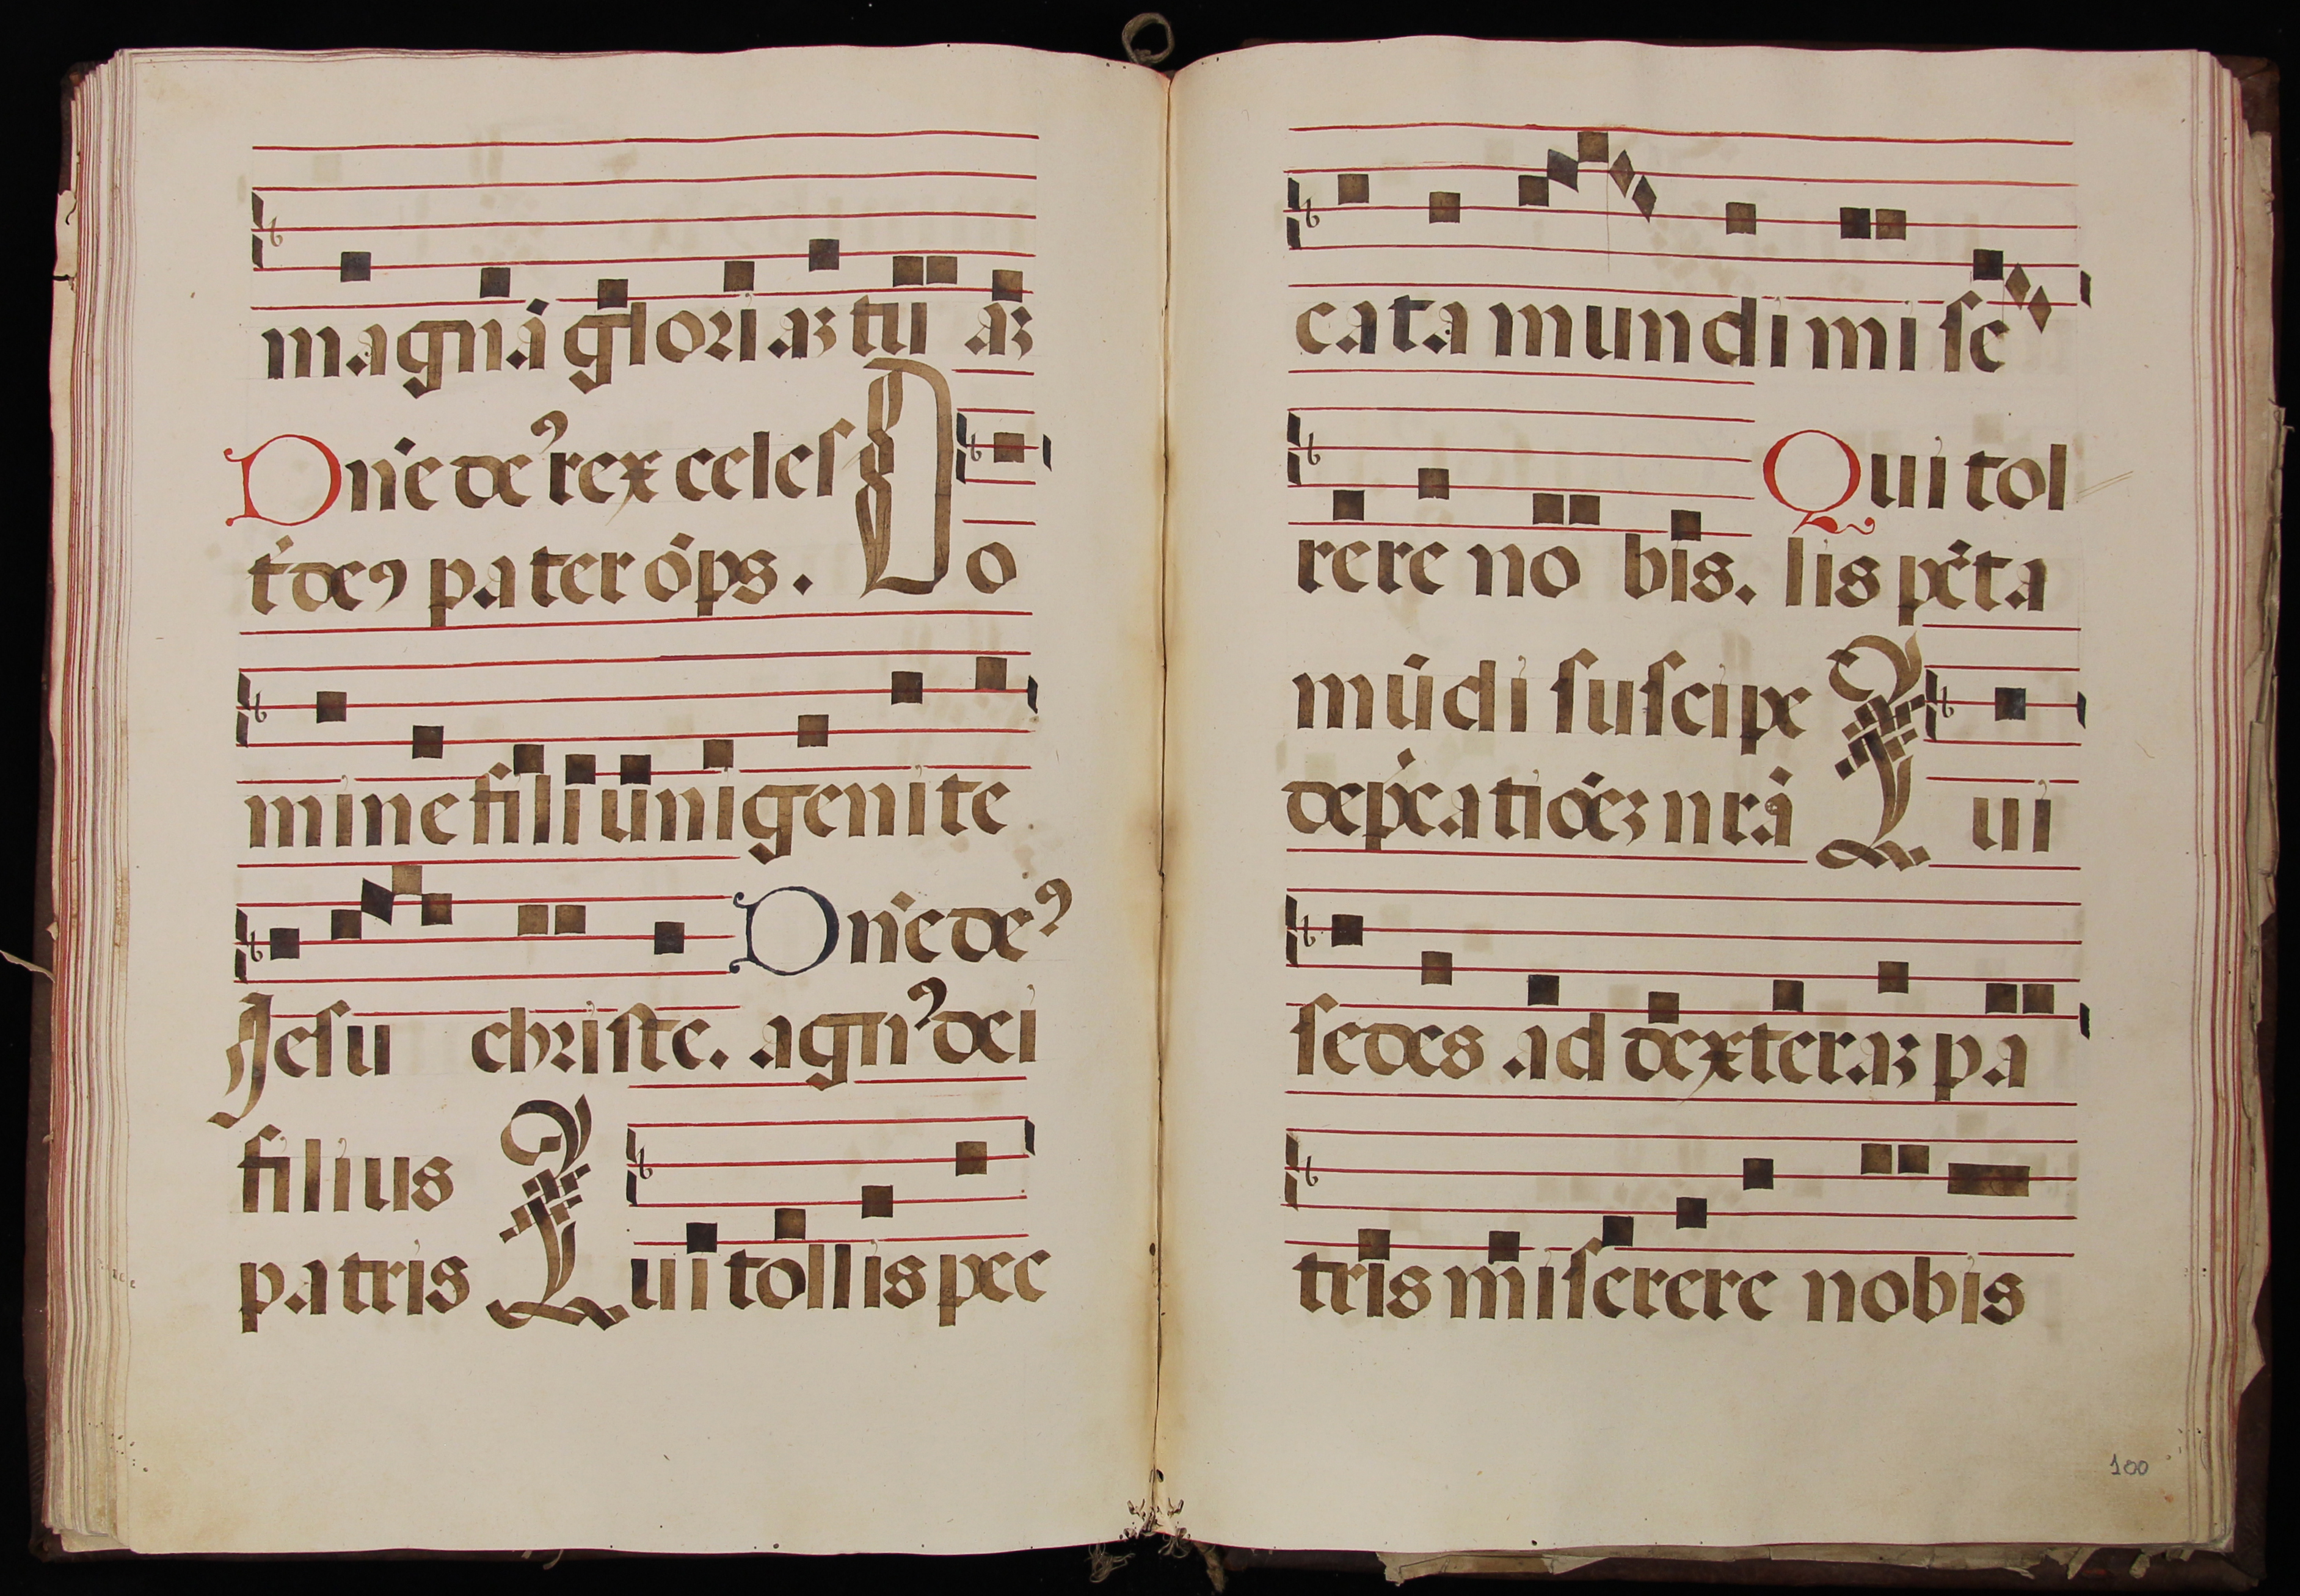 magnā gloriaꝫ tū aꝫ
Dñe deꝰ rex celes
t̄ deꝰ pater ōps. Do
mine fili ūnigenite
Jesu christe. Dñe deꝰ
agnꝰ dei
filius
patris Qui tollis pec
cata mundi mi se
rere no bis. Qui tol
lis pc̄ta
mūdi suscipe
dep̄catiōeꝫ nrā Qui
sedes ad dexteraꝫ pa
tris miserere nobis
100